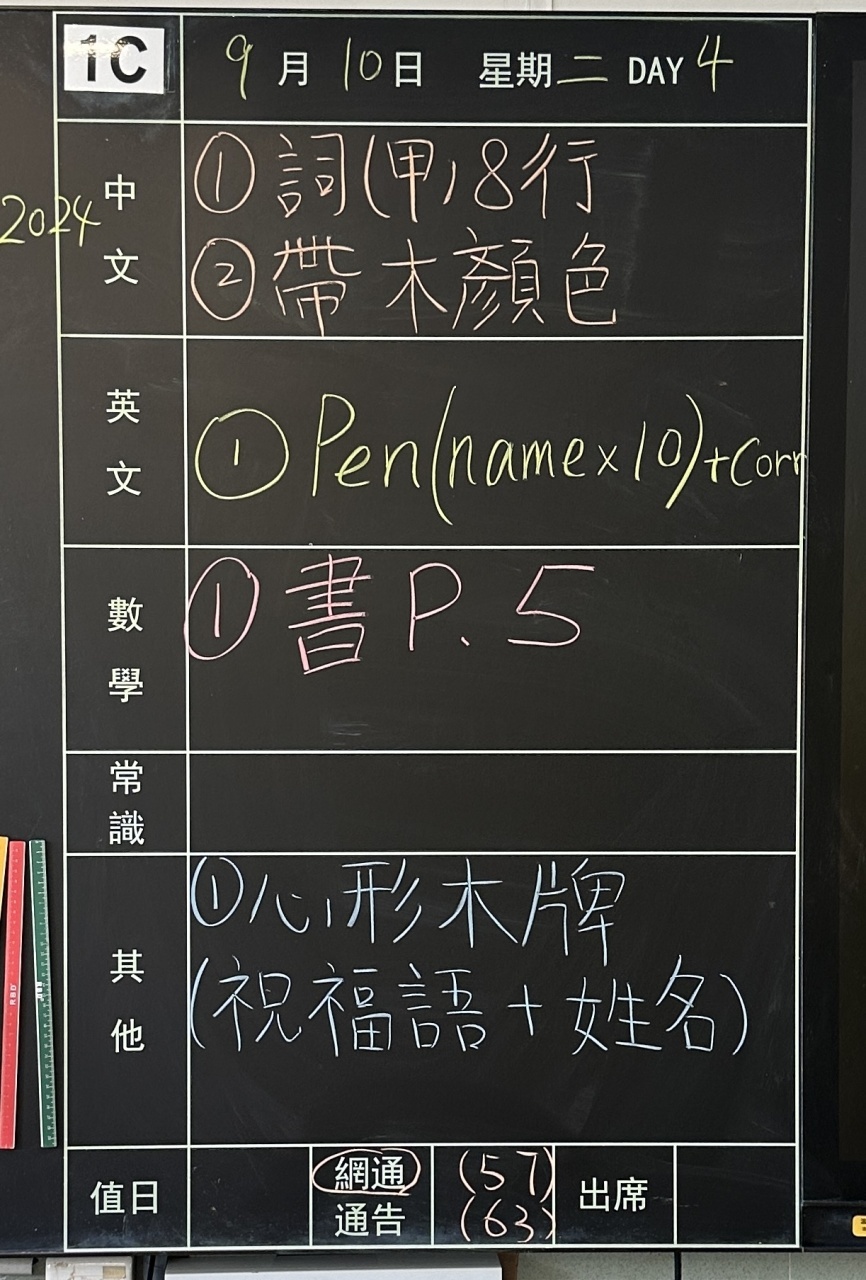 1C
9月10日 星期二 DAY 4
2024
中文
①詞(甲)8行
②帶木顏色
英文
①Pen(name×10)+Corr
數學
①書P.5
常識
其他
①心形木牌
(祝福語+姓名)
值日 網通 (57) 出席
通告 (63)